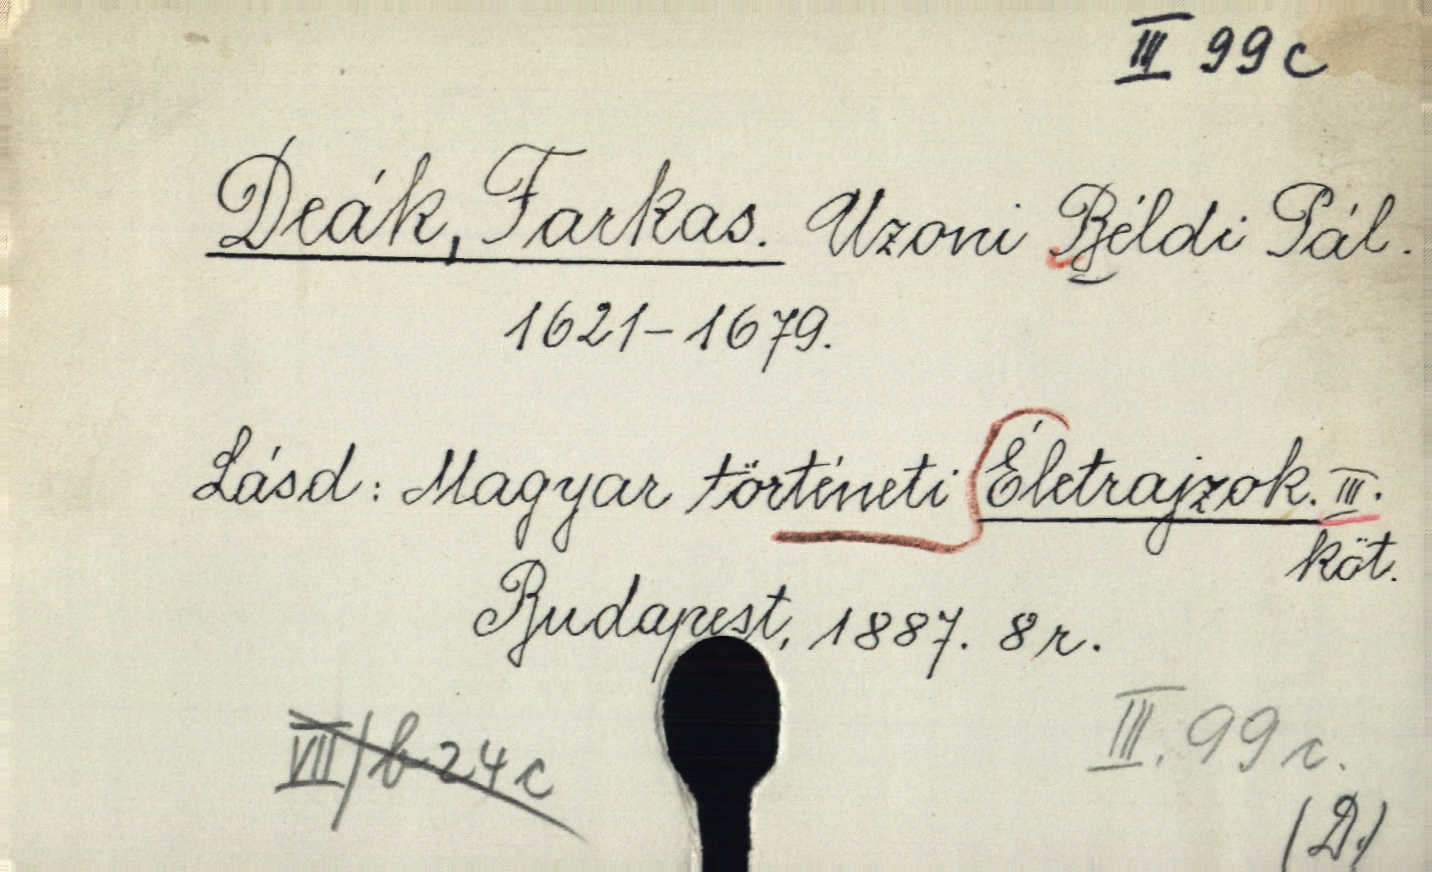 III 99 c
Deák, Farkas. Uzoni Béldi Pál.
1621-1679.
Lásd: Magyar történeti Életrajzok. III.
köt.
Budapest, 1887. 8 r.
VII/b 24 c
III. 99 c.
(D.)